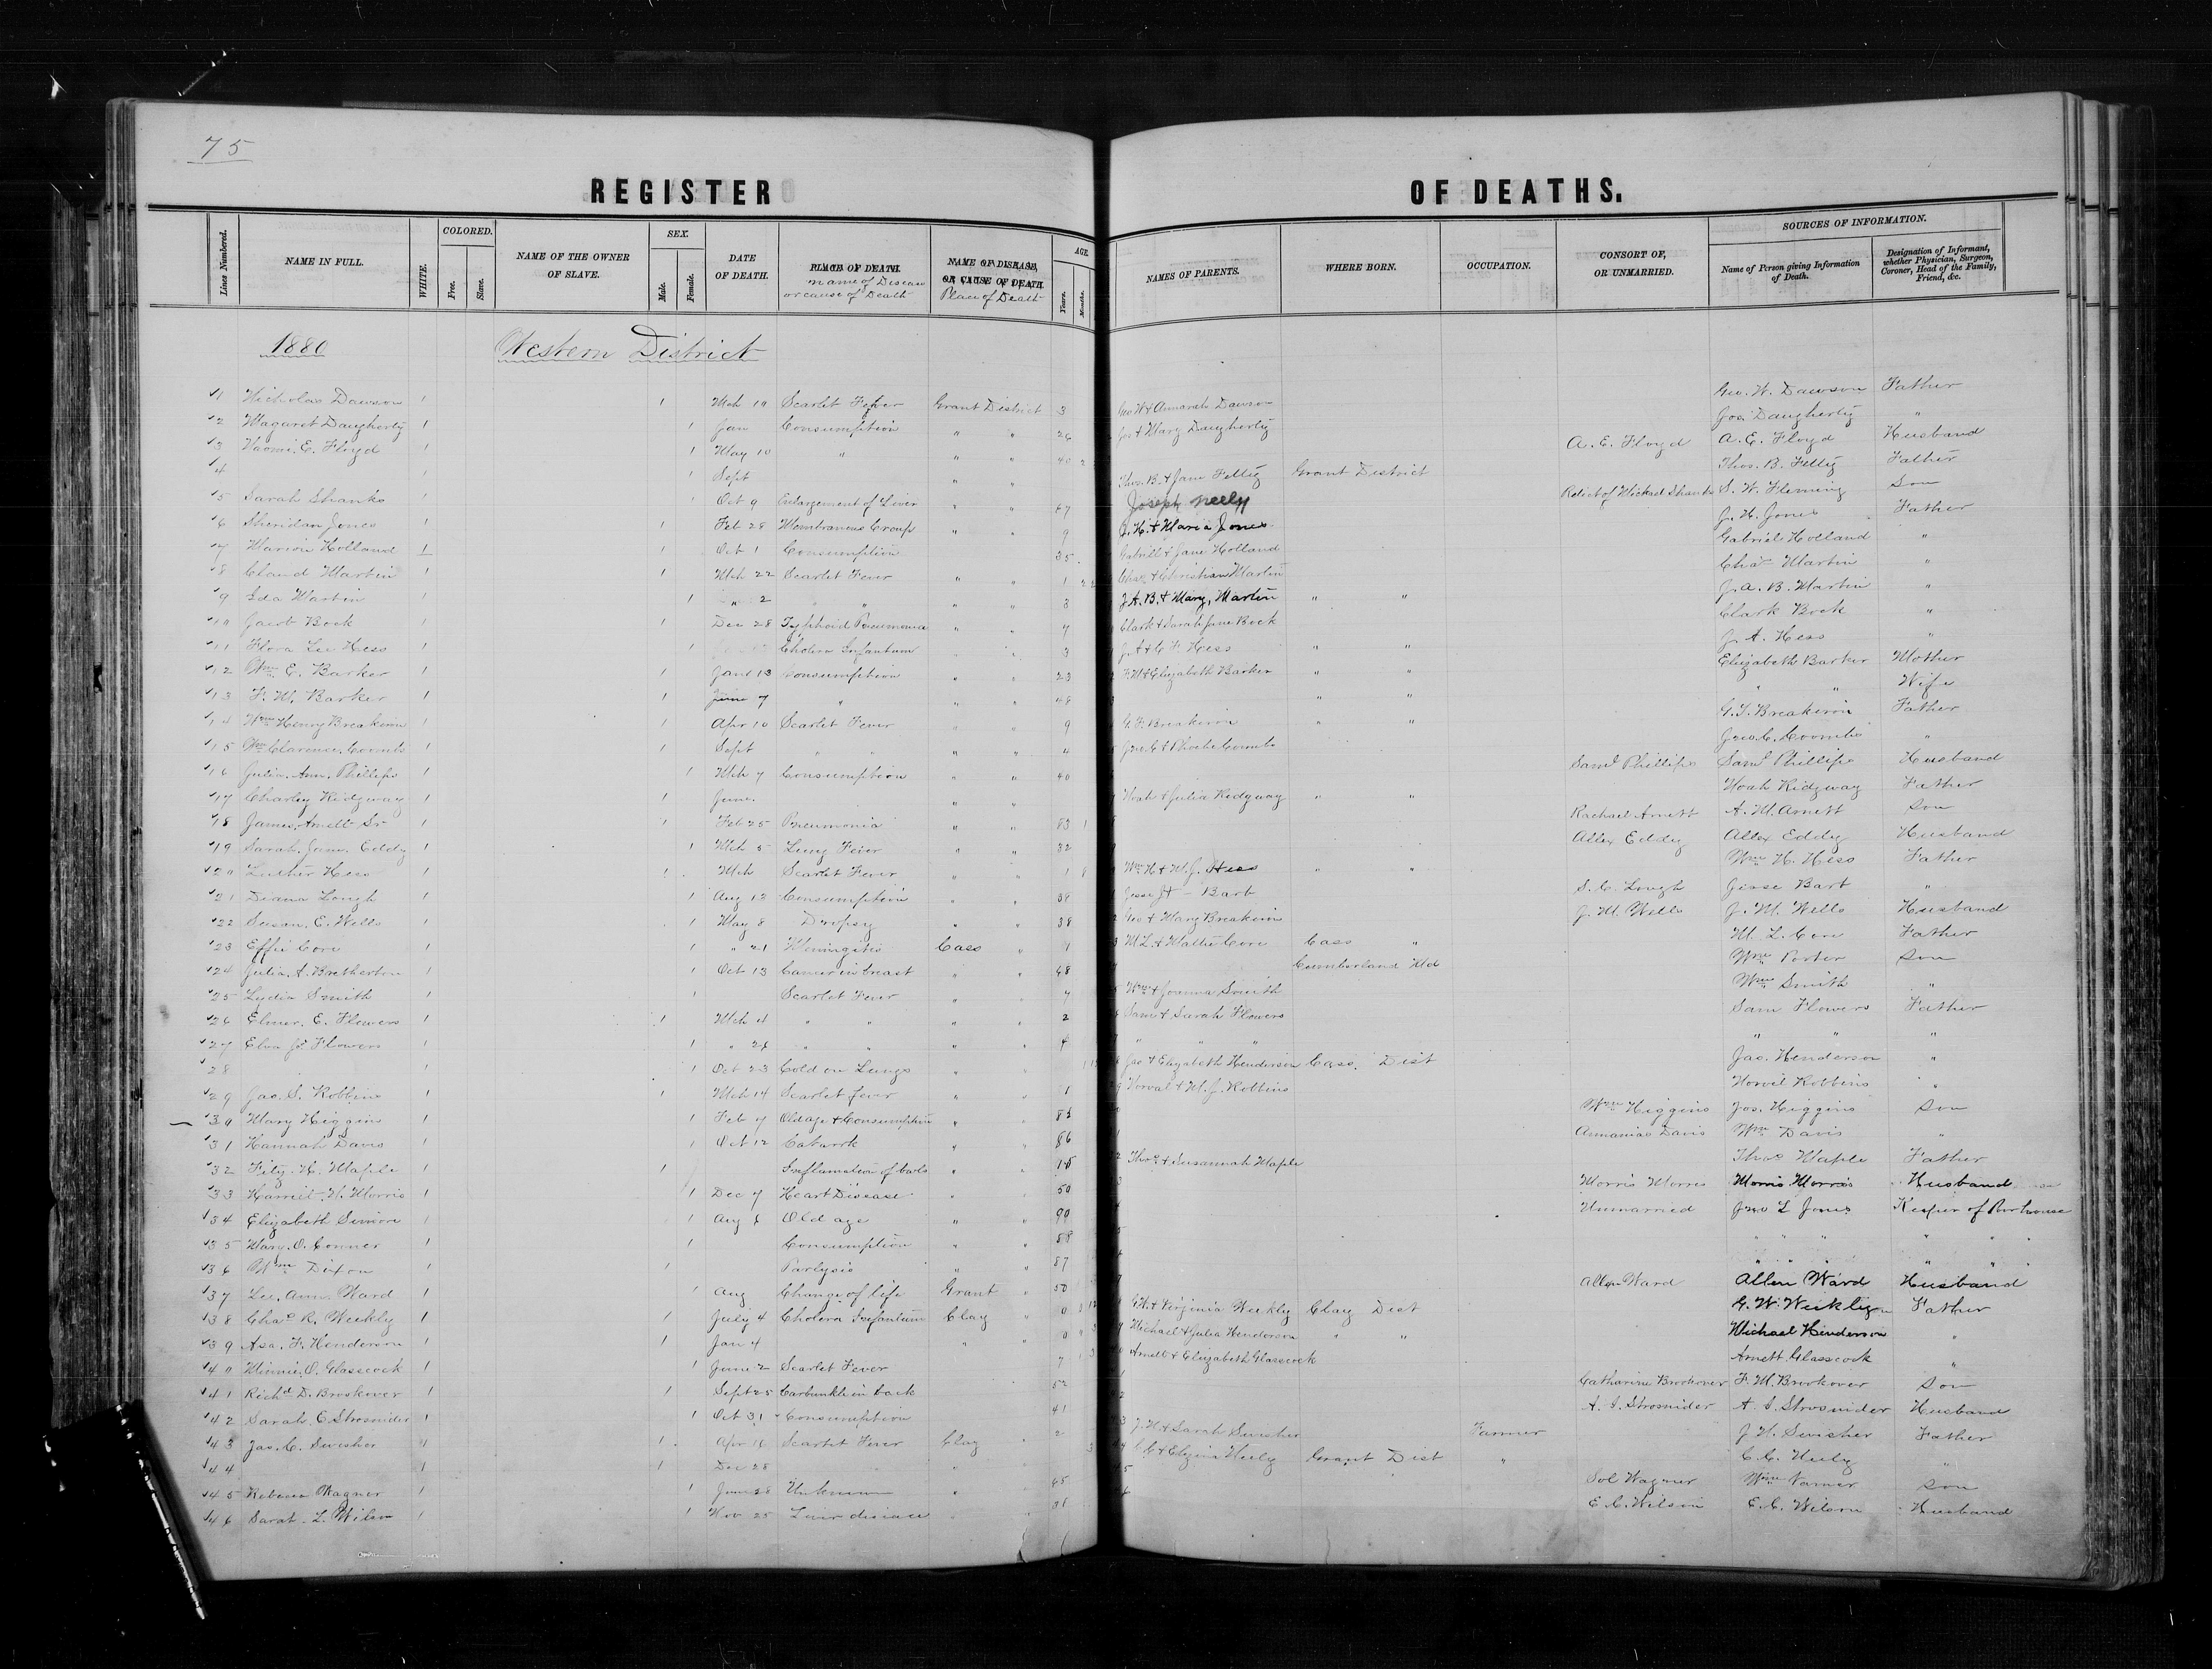 75
REGISTER OF DEATHS.
Lines Numbered. NAME IN FULL. WHITE. COLORED. Free. Slave. NAME OF THE OWNER OF SLAVE. SEX. Male. Female. DATE OF DEATH. PLACE OF DEATH. name of Disease or cause of Death NAME OF DISEASE, OR CAUSE OF DEATH. Place of Death AGE. Years. Months NAMES OF PARENTS. WHERE BORN. OCCUPATION. CONSORT OF, OR UNMARRIED. SOURCES OF INFORMATION. Name of Person giving Information of Death. Designation of Informant, whether Physician, Surgeon, Coroner, Head of the Family, Friend, &c.
1880 Western District
1 Nicholas Dawson 1 1 Mch 19 Scarlet Fever Grant District 3 Geo W & Annarah Dawson Geo. W. Dawson Father
2 Magaret Daugherty 1 1 Jan Consumption " " 26 Jos & Mary Daugherty Jos. Daugherty "
3 Naomi E. Floyd 1 1 May 10 " " " 40 2 A. E. Floyd A. E. Floyd Husband
4 1 1 Sept " " Thos. B. & Jane Fetty Grant District Thos. B. Fetty Father
5 Sarah Shanks 1 Oct 9 Enlargement of Liver " " 67 Joseph Neely Relict of Michael Shanks S. W. Fleming Son
6 Sheridan Jones 1 1 Feb 28 Membraneus Croup " " 9 J. H. & Maria Jones J. H. Jones Father
7 Marion Holland 1 1 Oct 1 Consumption 35 Gabriel & Jane Holland Gabriel Holland "
8 Claud Martin 1 1 Mch 22 Scarlet Fever " " 1 Chas & Christian Martin Chas Martin "
9 Ida Martin 1 1 " 2 " " " " 3 J A. B. & Mary, Martin " " J. A. B. Martin "
10 Jacob Bock 1 1 Dec 28 Typhoid Pneumonia " " 7 Clark & Sarah Jane Bock Clark Bock "
11 Flora Lee Hess 1 1 Cholera Infantum " " 3 J. A & C. F. Hess " " J. A. Hess "
12 Wm E. Barker 1 1 Jan 13 Consumption " " 23 F. M & Elizabeth Barker " " Elizabeth Barker Mother
13 F. M. Barker 1 1 June 7 " " " 48 " " " " Wife
14 Wm Henry Breakiron 1 1 Apr 10 Scarlet Fever " " 9 G. F. Breakiron " " G. F. Breakiron Father
15 Wm Clarence Coombs 1 1 Sept " " " " 4 Jno. C & Phoebe Coombs Jno. C. Coombs "
16 Julia. Ann. Phillips 1 1 Mch 7 Consumption " " 40 Saml Phillips Saml Phillips Husband
17 Charley Ridgway 1 1 June. " " Noah & Julia Ridgway " " Noah Ridgway Father
18 James, Arnett Sr 1 1 Feb 25 Pneumonia " " 83 1 Rachael Arnett A. M. Arnett Son
19 Sarah. Jane. Eddy 1 1 Mch 5 Lung Fever " " 32 Allex Eddy Allex Eddy Husband
20 Luther Hess 1 1 Mch Scarlet Fever " " 1 8 Wm H & M. J. Hess " " Wm H. Hess Father
21 Diana Lough 1 1 Aug 12 Consumption " " 39 Jesse J & - Bart S. C. Lough Jesse Bart "
22 Susan. E. Wells 1 1 May 8 Dropsy " " 38 Geo & Mary Breakiron J. M. Wells J. M. Wells Husband
23 Effie Core 1 1 " 21 Meningitis Cass " 1 M L. & Mattie Core Cass " M. L. Core Father
24 Julia. A. Bretherton 1 1 Oct 13 Cancer in breast " " 68 Cumberland Md Wm Porter Son
25 Lydia Smith 1 1 Scarlet Fever " " 7 Wm & Joanna Smith Wm Smith "
26 Elmer. E. Flowers 1 1 Mch 4 " " " " 2 Sam & Sarah Flowers Sam Flowers Father
27 Elva Jos Flowers 1 1 " 26 " " " " 4 " " " " " "
28 1 1 Oct 23 Cold on Lungs " " Jas & Elizabeth Henderson Cass. Dist Jas. Henderson "
29 Jas. S. Robbins 1 1 Mch 14 Scarlet fever " " 1 Norval & M. J. Robbins Norvil Robbins "
30 Mary Higgins 1 1 Feb 7 Old age & Consumption " " Wm Higgins Jos. Higgins Son
31 Hannah Davis 1 1 Oct 12 Catarrh " " 86 Annanias Davis Wm Davis "
32 Fitz. H. Maple 1 1 Inflamation of bowls " " 15 Thos & Susannah Maple Thos Maple Father
33 Harriet. N. Morris 1 1 Dec 7 Heart Disease " " 50 Morris Morris Morris Morris Husband
34 Elizabeth Simon 1 1 Aug 6 Old age " " 99 Unmarried Jno L Jones Keeper of Poorhouse
35 Mary. O. Conner 1 1 Consumption " " 58 " " " " " "
36 Wm Dixon 1 1 Parlysis " " 87 " " " " " "
37 Lee. Ann. Ward 1 1 Aug Change of life Grant " 50 Allen Ward Allen Ward Husband
38 Chas R. Weekly 1 1 July 4 Cholera Infantum Clay " 0 G W. & Virginia Weekly Clay Dist G. W. Weekly Father
39 Asa. F. Henderson 1 1 Jan 4 " 0 Michael & Julia Henderson " " Michael Henderson "
40 Minnie. O. Glasscock 1 1 June 2 Scarlet Fever 7 Arnett & Elizabeth Glasscock Arnett Glasscock "
41 Richd D. Brookover 1 1 Sept 25 Carbunkle in back 52 Catharine Brookover F. M. Brookover Son
42 Sarah. E Strosnider 1 1 Oct 31 Consumption 41 A. I. Strosnider A. I. Strosnider Husband
43 Jas. C. Swisher 1 1 Apr 16 Scarlet Fever Clay " 2 J. H & Sarah Swisher Farmer J H. Swisher Father
44 1 1 Dec 28 " 3 C. C & Elzina Neely Grant Dist " C. C. Neely "
45 Rebecca Wagner 1 1 June 28 Unknown " 65 Sol Wagner Wm Varner Son
46 Sarah. L. Wilson 1 1 Nov 25 Liver disease " " 31 E. C. Wilson E. C. Wilson Husband